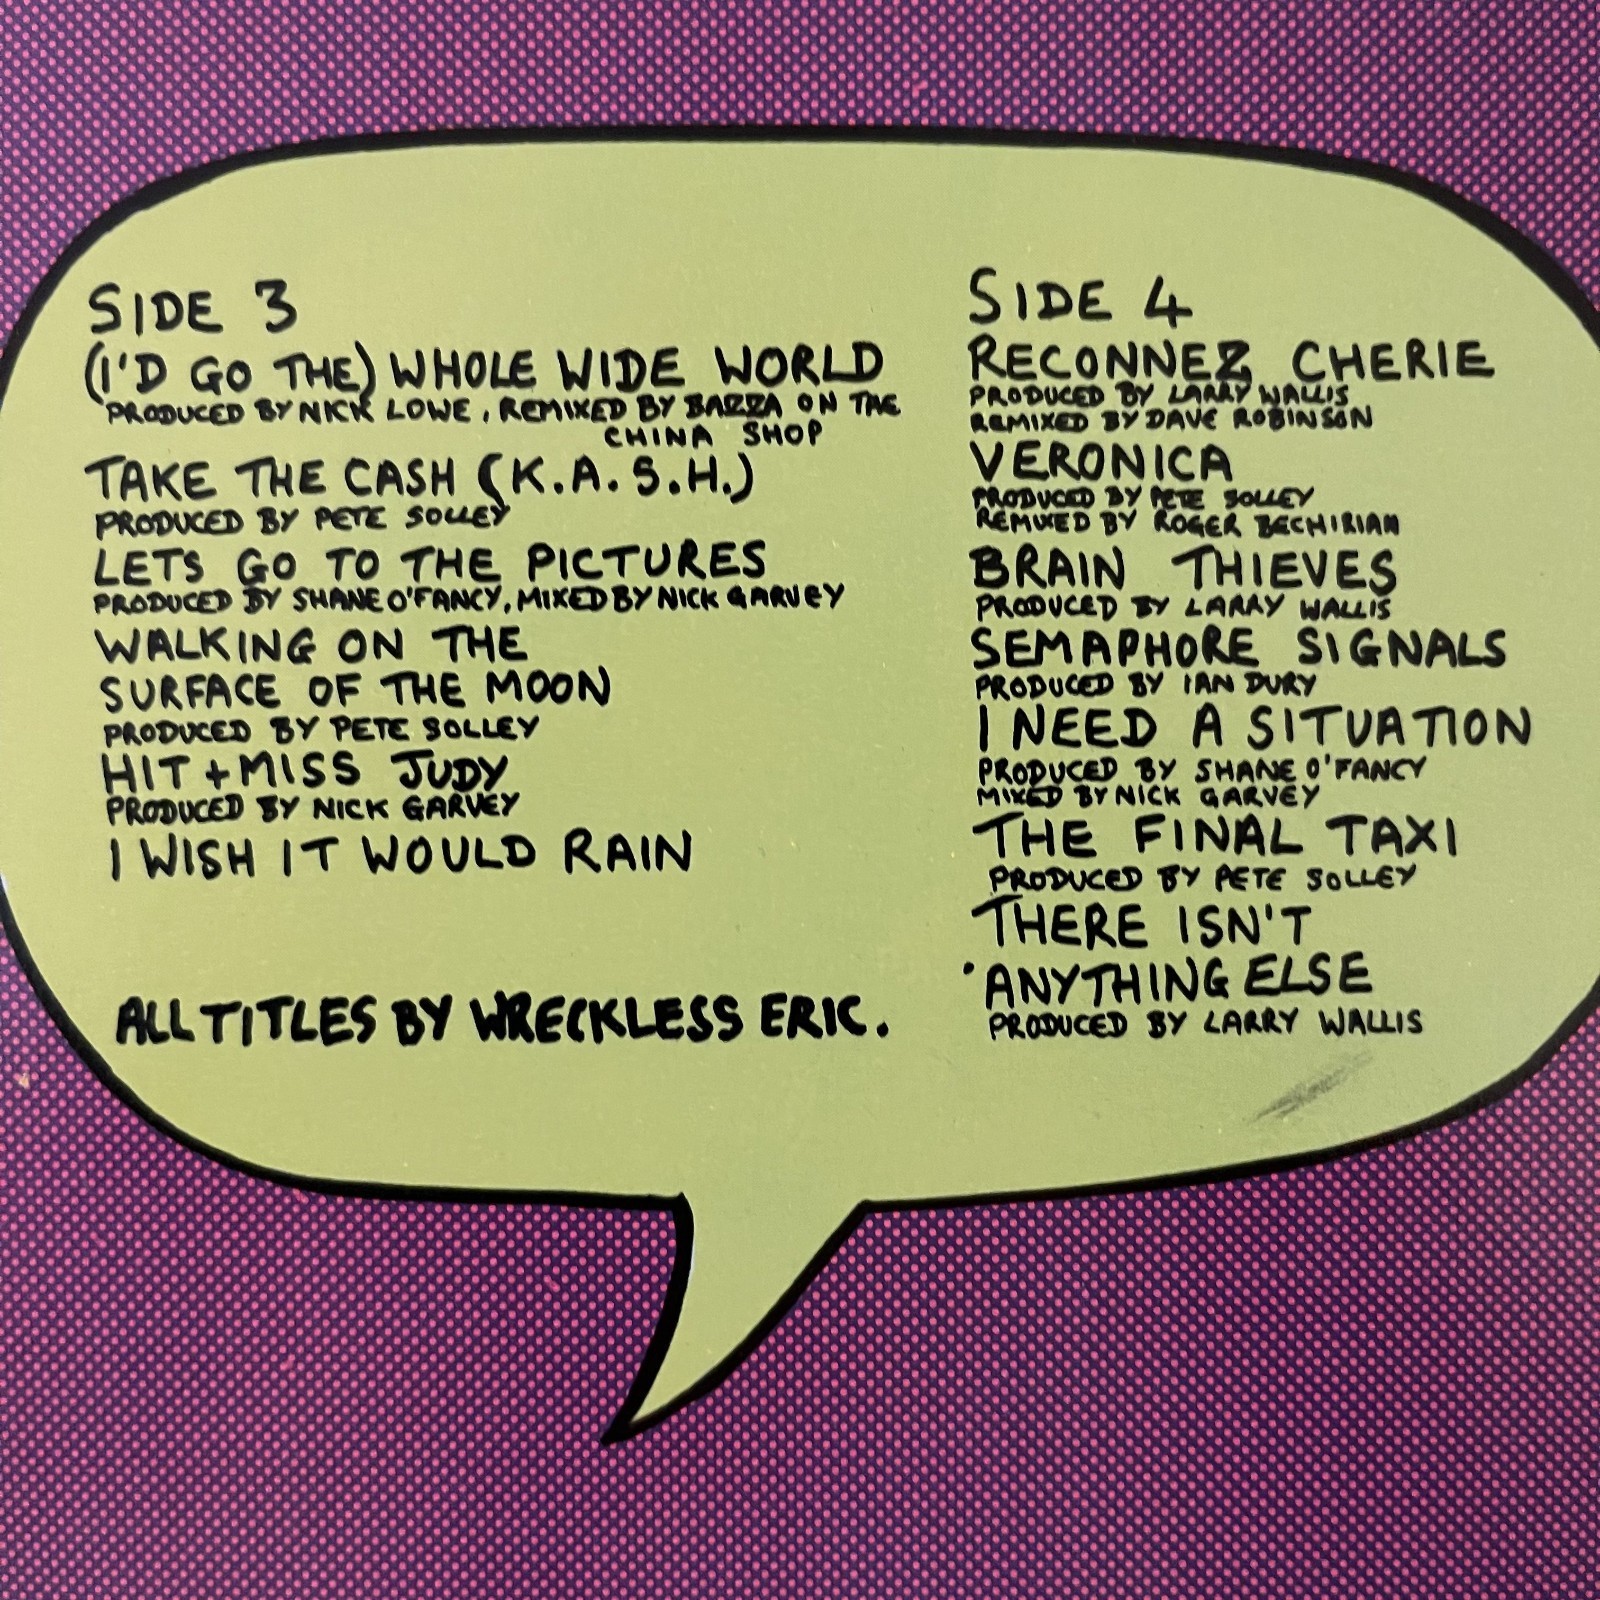 SIDE 3
(I'D GO THE) WHOLE WIDE WORLD
PRODUCED BY NICK LOWE, REMIXED BY BAZZA ON THE
CHINA SHOP
TAKE THE CASH (K.A.S.H.)
PRODUCED BY PETE SOLLEY
LETS GO TO THE PICTURES
PRODUCED BY SHANE O'FANCY, MIXED BY NICK GARVEY
WALKING ON THE
SURFACE OF THE MOON
PRODUCED BY PETE SOLLEY
HIT + MISS JUDY
PRODUCED BY NICK GARVEY
I WISH IT WOULD RAIN
ALL TITLES BY WRECKLESS ERIC.
SIDE 4
RECONNEZ CHERIE
PRODUCED BY LARRY WALLIS
REMIXED BY DAVE ROBINSON
VERONICA
PRODUCED BY PETE SOLLEY
REMIXED BY ROGER BECHIRIAN
BRAIN THIEVES
PRODUCED BY LARRY WALLIS
SEMAPHORE SIGNALS
PRODUCED BY IAN DURY
I NEED A SITUATION
PRODUCED BY SHANE O'FANCY
MIXED BY NICK GARVEY
THE FINAL TAXI
PRODUCED BY PETE SOLLEY
THERE ISN'T
ANYTHING ELSE
PRODUCED BY LARRY WALLIS